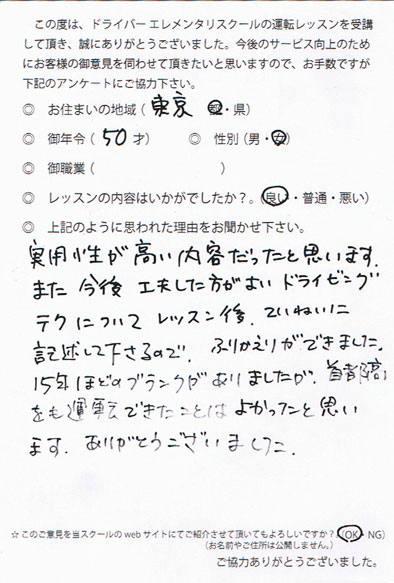 この度は、ドライバー エレメンタリスクールの運転レッスンを受講
して頂き、誠にありがとうございました。今後のサービス向上のため
にお客様の御意見を伺わせて頂きたいと思いますので、お手数ですが
下記のアンケートにご協力下さい。
◎ お住まいの地域(東京 都・県)
◎ 御年令(50才) ◎ 性別(男・女)
◎ 御職業( )
◎ レッスンの内容はいかがでしたか？。(良い・普通・悪い)
◎ 上記のように思われた理由をお聞かせ下さい。
実用性が高い内容だったと思います。
また今後工夫した方がよいドライビング
テクについてレッスン後、ていねいに
記述して下さるので、ふりかえりができました。
15年ほどのブランクがありましたが、首都高
をも運転できたことはよかったと思い
ます。ありがとうございました。
☆このご意見を当スクールの web サイトにてご紹介させて頂いてもよろしいですか？(OK・NG)
(お名前やご住所は公開しません。)
ご協力ありがとうございました。